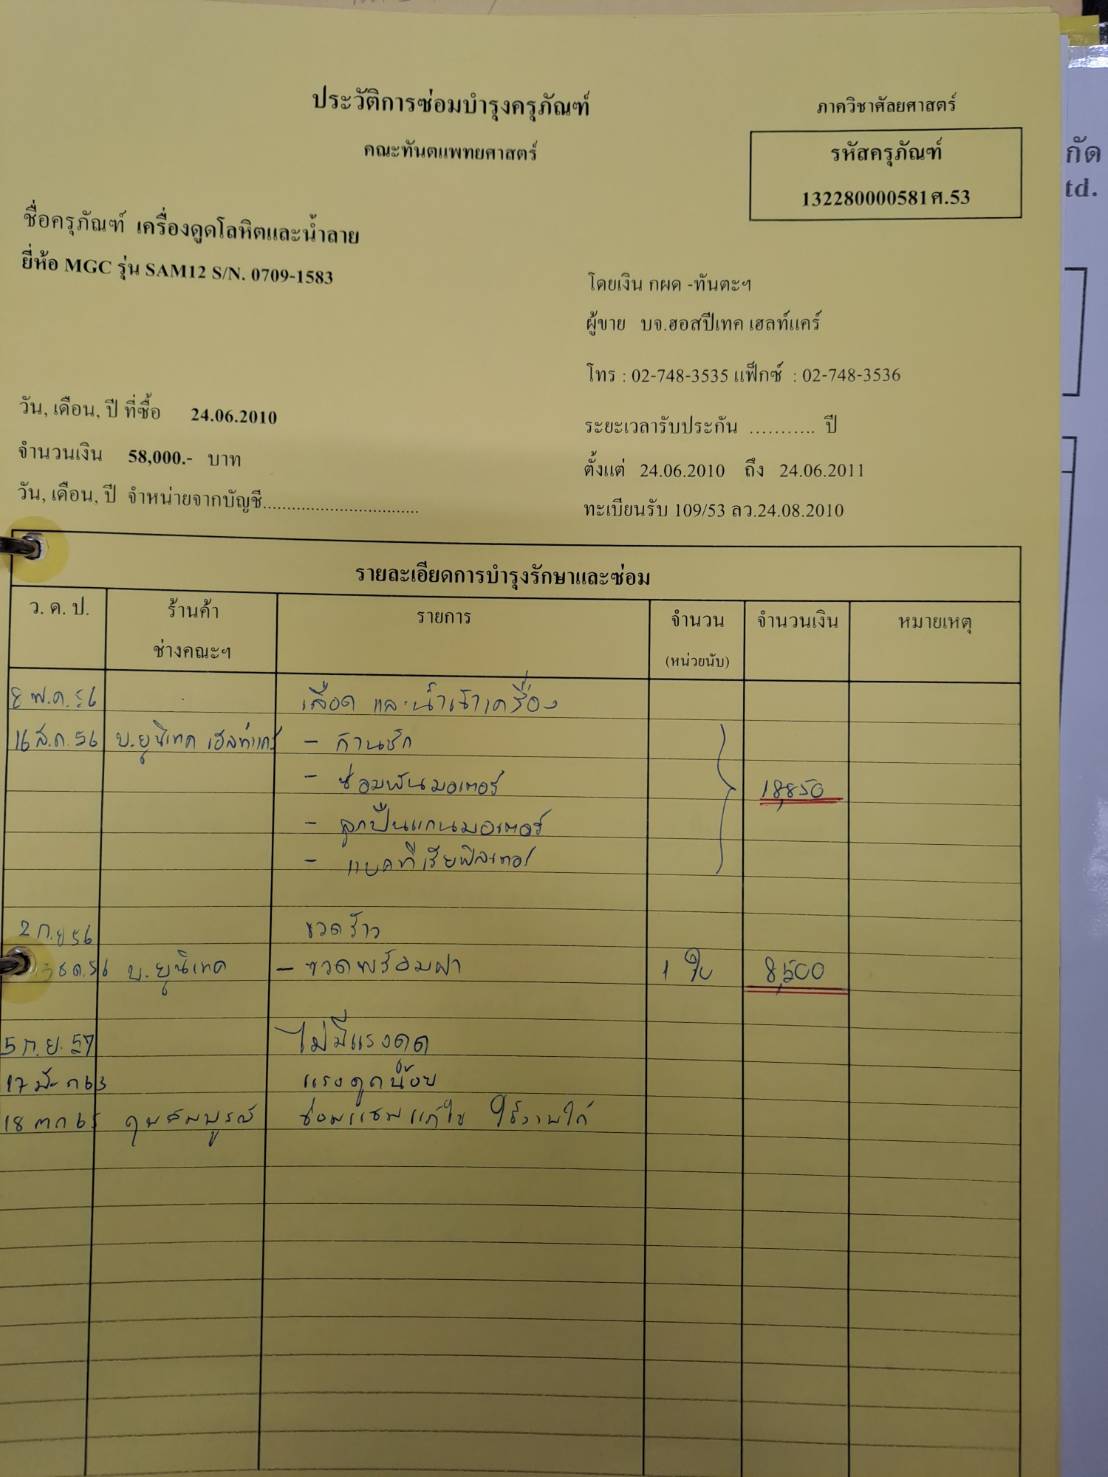 ประวัติการซ่อมบำรุงครุภัณฑ์
คณะทันตแพทยศาสตร์
ภาควิชาศัลยศาสตร์
รหัสครุภัณฑ์
132280000581ศ.53
กัด
td.
ชื่อครุภัณฑ์ เครื่องดูดโลหิตและน้ำลาย
ยี่ห้อ MGC รุ่น SAM12 S/N. 0709-1583
โดยเงิน กผด -ทันตะฯ
ผู้ขาย บจ.ฮอสปีเทค เฮลท์แคร์
โทร : 02-748-3535 แฟ็กซ์ : 02-748-3536
วัน, เดือน, ปี ที่ซื้อ 24.06.2010
ระยะเวลารับประกัน ........... ปี
จำนวนเงิน 58,000.- บาท
ตั้งแต่ 24.06.2010 ถึง 24.06.2011
วัน, เดือน, ปี จำหน่ายจากบัญชี................................
ทะเบียนรับ 109/53 ลว.24.08.2010
รายละเอียดการบำรุงรักษาและซ่อม
ว. ด. ป. ร้านค้า ช่างคณะฯ รายการ จำนวน (หน่วยนับ) จำนวนเงิน หมายเหตุ
8 พ.ค. 56 เลือด และน้ำเข้าเครื่อง
16 ส.ค. 56 บ.ยูนิเทค เฮลท์แคร์ - ก้านชัก
- ซ่อมพันมอเตอร์ 18,850
- ลูกปืนแกนมอเตอร์
- แบคทีเรียฟิลเตอร์
2 ก.ย 56 ขวดร้าว
ธค.56 บ.ยูนิเทค - ขวดพร้อมฝา 1 ใบ 8,500
5 ก.ย. 57 ไม่มีแรงดูด
17 มีค 63 แรงดูดน้อย
18 ตค 65 คุณสมบูรณ์ ซ่อมแซมแก้ไข ใช้งานได้